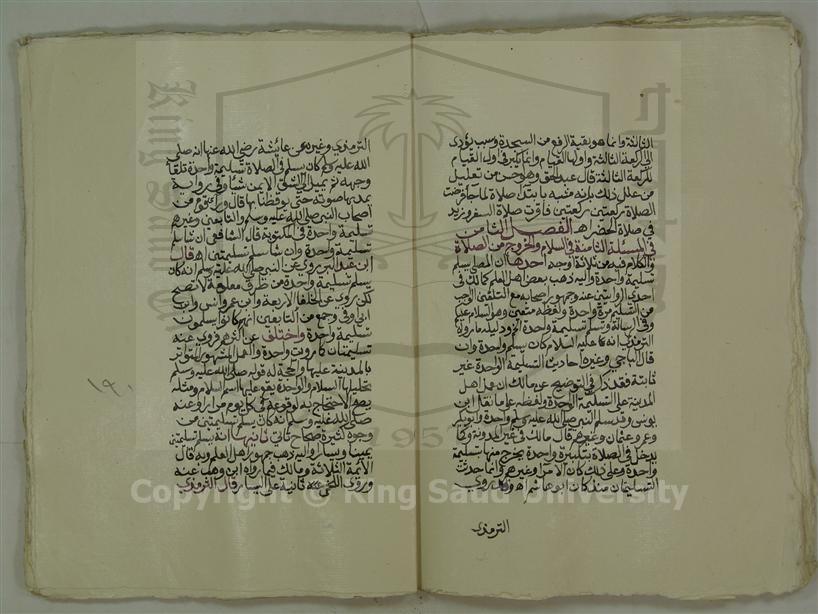 الثالثة وانما هو بقية الرفع من السجدة وسبب يؤدى
الى الركعة الثالثة واولها القيام وانما يكبر في اول القيام
للركعة الثالثة قال عبد الحق وهو حسن من تعليل
من علل ذلك بانه مشبه بابتداء صلاة لما جاء فرضت
الصلاة ركعتين ركعتين فاقرت صلاة السفر وزيد
في صلاة الحضر اهـ الفصل الثامن
في المسئلة الثامنة في السلام والخروج من الصلاة
والكلام فيه من ثلاثة اوجه احدها ان المصلي يسلم
تسليمة واحدة واليه ذهب بعض اهل العلم كمالك في
احدى الروايتين عنه وجمهور اصحابه مع التلقين الواجب
من التسليم مرة واحدة ولفظه متعين وهو السلام عليكم
وفي الرسالة وتسلم تسليمة واحدة لما رواه
الترمذى انه عليه السلام كان يسلم واحدة وان
قال الباجي وغيره احاديث التسليمة الواحدة غير
ثابتة فقد ذكر في التوضيح عن مالك ان عمل اهل
المدينة على التسليمة الواحدة ولفظه على ما نقله ابن
يونس وقد سلم النبي صلى الله عليه وسلم واحدة وابو بكر
وعمر وعثمان وغيرهم قال مالك في غير المدونة وكما
يدخل في الصلاة بتكبيرة واحدة يخرج منها بتسليمة
واحدة وعلى ذلك كان الامر وغيرهم وانما حدثت
التسليمتان منذ كان بنو هاشم اهـ وقد روى
الترمذى
الترمذى وغيره عن عائشة رضي الله عنها انه صلى
الله عليه وسلم كان يسلم في الصلاة تسليمة واحدة تلقاء
وجهه ثم يميل الى الشق الايمن شيئا وفي رواية
يمد بها صوته حتى يوقظنا بها قال وراى قوم من
اصحاب النبي صلى الله عليه وسلم والتابعين وغيرهم
تسليمة واحدة في المكتوبة قال الشافعي ان شاء سلم
تسليمة واحدة وان شاء سلم تسليمتين اهـ قال
ابن عبد البر روي عن النبي صلى الله عليه وسلم انه كان
يسلم تسليمة واحدة من طرق معلولة لا تصح
لكن روي عن الخلفا الاربعة وابن عمر وانس وابن
ابي اوفى وجمع من التابعين انهم كانوا يسلمون
تسليمة واحدة واختلف عن اكثرهم فروي عنه
تسليمتان كما رويت واحدة والعمل المشهور المتواتر
بالمدينة عليها والحجة له قوله صلى الله عليه وسلم
تحليلها السلام والواحدة يقع عليها اسم السلام ومثله
يصح الاحتجاج به لوقوعه في كل يوم مرارا وعنه
صلى الله عليه وسلم انه كان يسلم تسليمتين من
وجوه كثيرة صحاح ثاني ثانيها انه يسلم تسليمتين
يمينا ويسارا واليه ذهب جمهور اهل العلم وبه قال
الائمة الثلاثة ومالك فيما رواه ابن وهب عنه
وروى اللخمي عنه ثانية على اليسار قال الترمذى
١٩٠
King Saud University
1957
Copyright © King Saud University